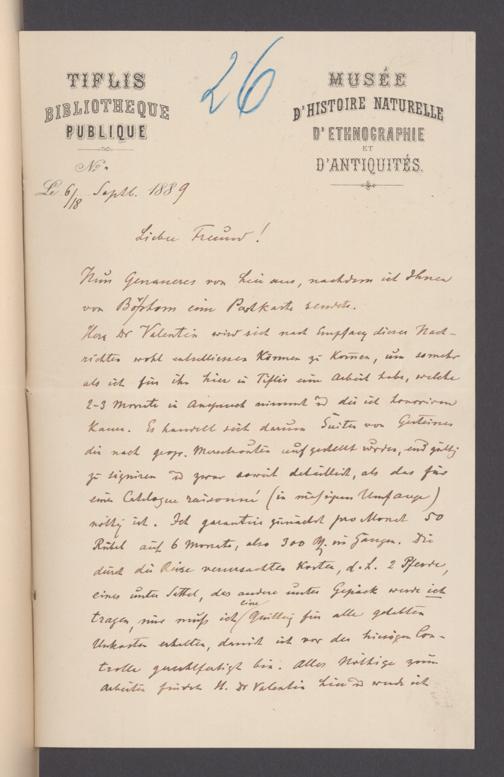 TIFLIS
BIBLIOTHEQUE
PUBLIQUE
No.
26
MUSÉE
D'HISTOIRE NATURELLE
D'ETHNOGRAPHIE
ET
D'ANTIQUITÉS.
Le 6/18 Septb. 1889
Lieber Freund!
Nun Genaueres von hier aus, nachdem ich Ihnen
von eine Postkarte sendete.
Herr Dr Valentin wird sich nach Empfang dieser Nach-
richten wohl entschliessen können zu kommen, um so mehr
als ich für ihn hier in Tiflis eine Arbeit habe, welche
2-3 Monate in Anspruch nimmt und die ich honoriren
kann. Es handelt sich darum Suiten von Gesteinen
die nach geogr. aufgestellt wurden, endgültig
zu signiren und zwar soweit detaillirt, als das für
einen Catalogue raisonné (in Umfange)
nöthig ist. Ich garantire zunächst pro Monat 50
Rubel auf 6 Monate, also 300 R. im Ganzen. Die
durch die Reise verursachten Kosten, d.h. 2 Pferde,
eines unter Sattel, das andere unter Gepäck werde ich
tragen, nur muss ich eine Quittung für alle gehabten
Unkosten erhalten, damit ich vor der hiesigen Con-
trolle gerechtfertigt bin. Alles Nöthige zum
Arbeiten findet H. Dr Valentin hier und werde ich